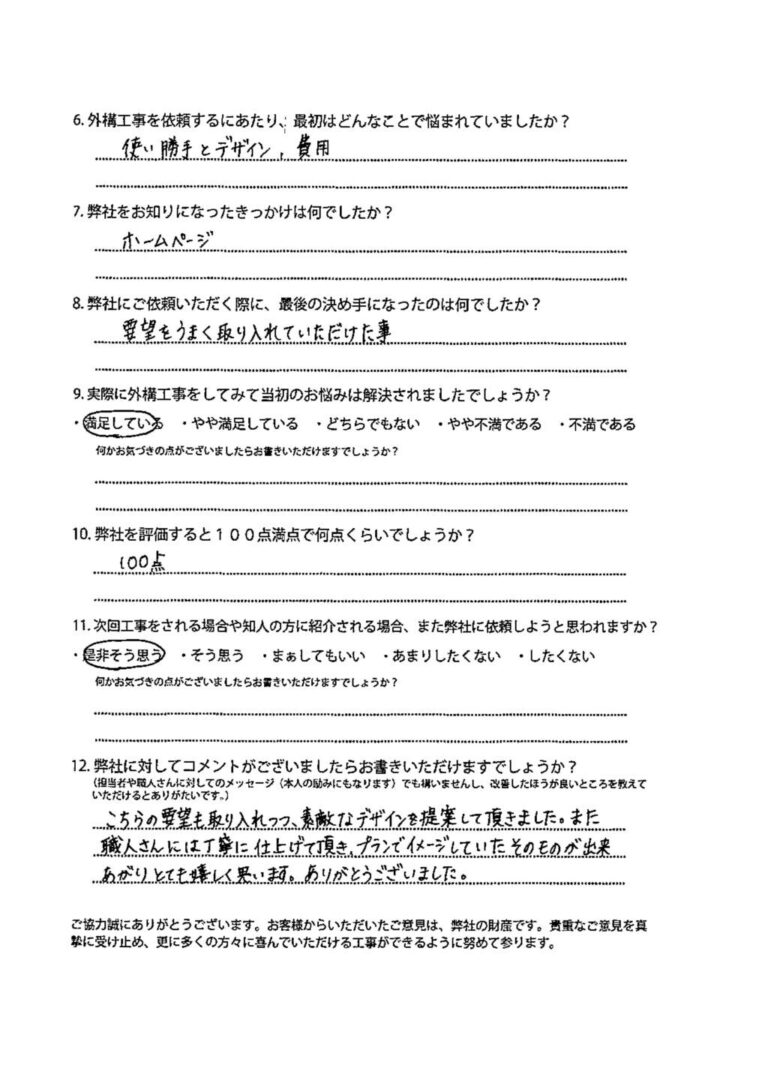 6. 外構工事を依頼するにあたり、最初はどんなことで悩まれていましたか？
使い勝手とデザイン，費用
7. 弊社をお知りになったきっかけは何でしたか？
ホームページ
8. 弊社にご依頼いただく際に、最後の決め手になったのは何でしたか？
要望をうまく取り入れていただけた事
9. 実際に外構工事をしてみて当初のお悩みは解決されましたでしょうか？
・満足している ・やや満足している ・どちらでもない ・やや不満である ・不満である
何かお気づきの点がございましたらお書きいただけますでしょうか？
10. 弊社を評価すると１００点満点で何点くらいでしょうか？
100点
11. 次回工事をされる場合や知人の方に紹介される場合、また弊社に依頼しようと思われますか？
・是非そう思う ・そう思う ・まぁしてもいい ・あまりしたくない ・したくない
何かお気づきの点がございましたらお書きいただけますでしょうか？
12. 弊社に対してコメントがございましたらお書きいただけますでしょうか？
（担当者や職人さんに対してのメッセージ（本人の励みにもなります）でも構いませんし、改善したほうが良いところを教えて
いただけるとありがたいです。）
こちらの要望も取り入れつつ、素敵なデザインを提案して頂きました。また
職人さんには丁寧に仕上げて頂き、プランでイメージしていたそのものが出来
あがりとても嬉しく思います。ありがとうございました。
ご協力誠にありがとうございます。お客様からいただいたご意見は、弊社の財産です。貴重なご意見を真
摯に受け止め、更に多くの方々に喜んでいただける工事ができるように努めて参ります。